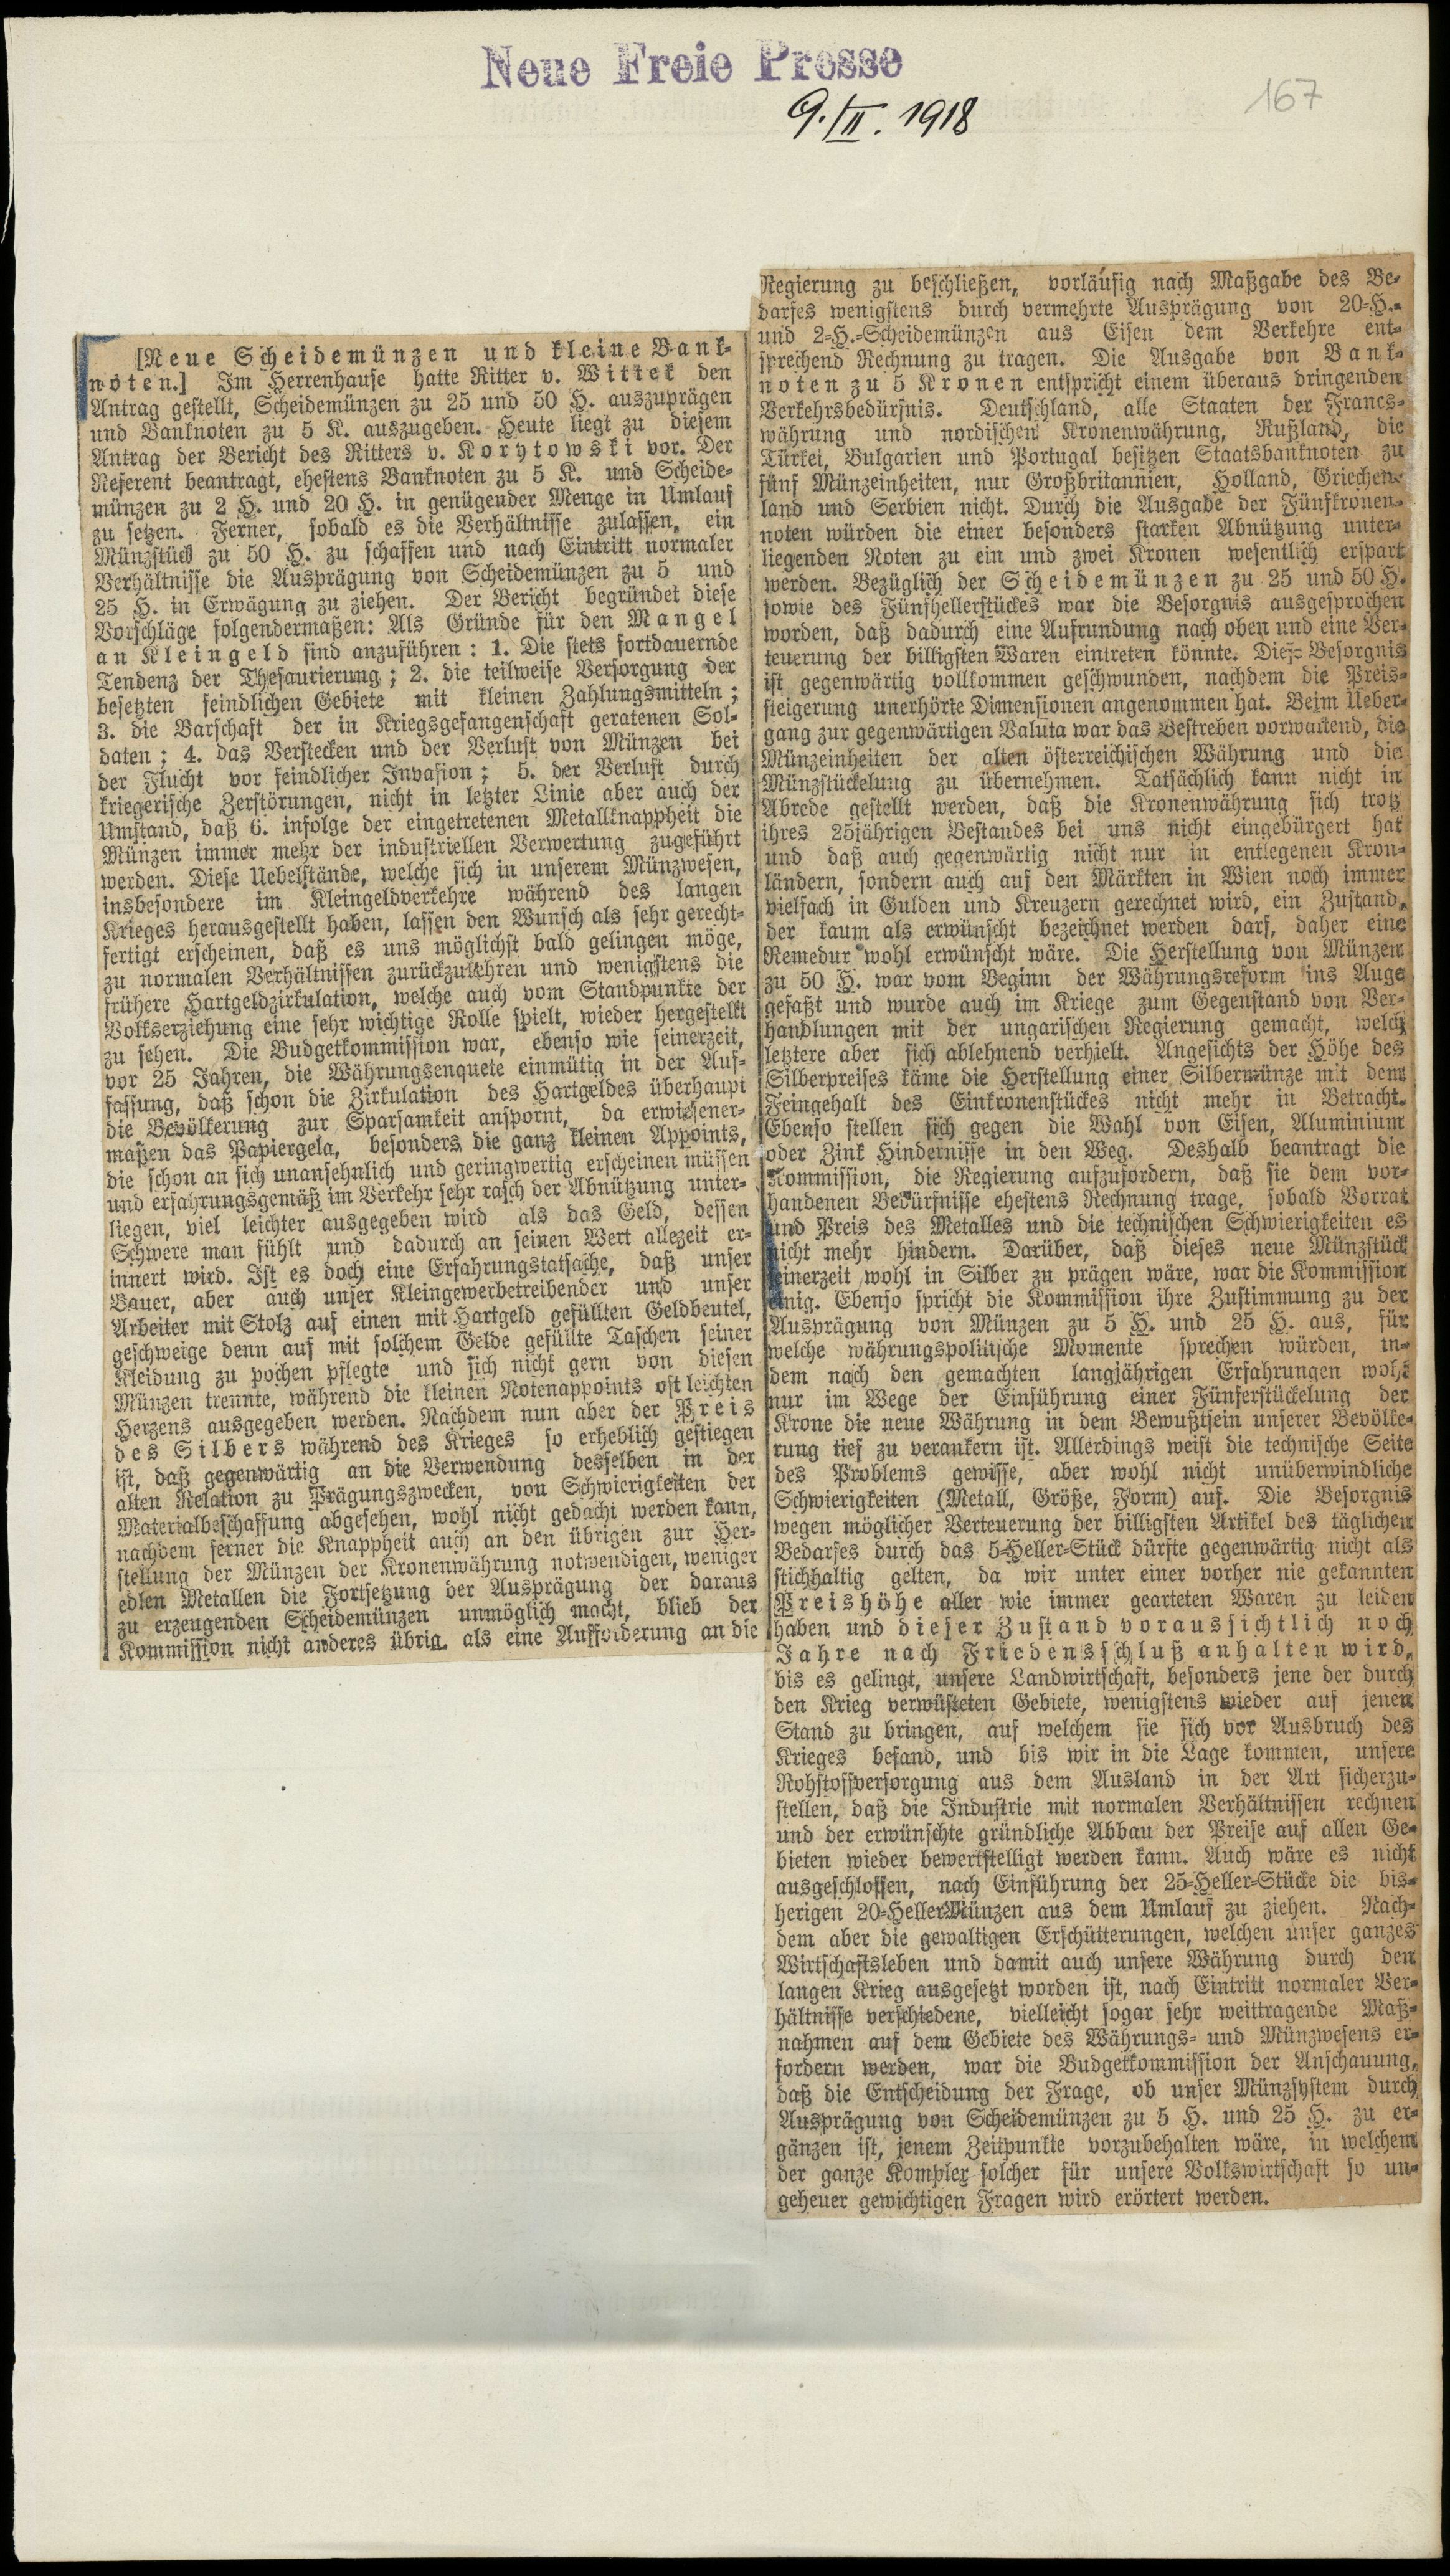 Neue Freie Presse
9./II. 1918
167
[Neue Scheidemünzen und kleine Bank-
noten.] Im Herrenhause hatte Ritter v. Wittek den
Antrag gestellt, Scheidemünzen zu 25 und 50 H. auszuprägen
und Banknoten zu 5 K. auszugeben. Heute liegt zu diesem
Antrag der Bericht des Ritters v. Korytowski vor. Der
Referent beantragt, ehestens Banknoten zu 5 K. und Scheide-
münzen zu 2 H. und 20 H. in genügender Menge in Umlauf
zu setzen. Ferner, sobald es die Verhältnisse zulassen, ein
Münzstück zu 50 H. zu schaffen und nach Eintritt normaler
Verhältnisse die Ausprägung von Scheidemünzen zu 5 und
25 H. in Erwägung zu ziehen. Der Bericht begründet diese
Vorschläge folgendermaßen: Als Gründe für den Mangel
an Kleingeld sind anzuführen: 1. Die stets fortdauernde
Tendenz der Thesaurierung; 2. die teilweise Versorgung der
besetzten feindlichen Gebiete mit kleinen Zahlungsmitteln;
3. die Barschaft der in Kriegsgefangenschaft geratenen Sol-
daten; 4. das Verstecken und der Verlust von Münzen bei
der Flucht vor feindlicher Invasion; 5. der Verlust durch
kriegerische Zerstörungen, nicht in letzter Linie aber auch der
Umstand, daß 6. infolge der eingetretenen Metallknappheit die
Münzen immer mehr der industriellen Verwertung zugeführt
werden. Diese Uebelstände, welche sich in unserem Münzwesen,
insbesondere im Kleingeldverkehre während des langen
Krieges herausgestellt haben, lassen den Wunsch als sehr gerecht-
fertigt erscheinen, daß es uns möglichst bald gelingen möge,
zu normalen Verhältnissen zurückzukehren und wenigstens die
frühere Hartgeldzirkulation, welche auch vom Standpunkte der
Volkserziehung eine sehr wichtige Rolle spielt, wieder hergestellt
zu sehen. Die Budgetkommission war, ebenso wie seinerzeit,
vor 25 Jahren, die Währungsenquete einmütig in der Auf-
fassung, daß schon die Zirkulation des Hartgeldes überhaupt
die Bevölkerung zur Sparsamkeit anspornt, da erwiesener-
maßen das Papiergeld, besonders die ganz kleinen Appoints,
die schon an sich unansehnlich und geringwertig erscheinen müssen
und erfahrungsgemäß im Verkehr sehr rasch der Abnützung unter-
liegen, viel leichter ausgegeben wird als das Geld, dessen
Schwere man fühlt und dadurch an seinen Wert allezeit er-
innert wird. Ist es doch eine Erfahrungstatsache, daß unser
Bauer, aber auch unser Kleingewerbetreibender und unser
Arbeiter mit Stolz auf einen mit Hartgeld gefüllten Geldbeutel,
geschweige denn auf mit solchem Gelde gefüllte Taschen seiner
Kleidung zu pochen pflegte und sich nicht gern von diesen
Münzen trennte, während die kleinen Notenappoints oft leichten
Herzens ausgegeben werden. Nachdem nun aber der Preis
des Silbers während des Krieges so erheblich gestiegen
ist, daß gegenwärtig an die Verwendung desselben in der
alten Relation zu Prägungszwecken, von Schwierigkeiten der
Materialbeschaffung abgesehen, wohl nicht gedacht werden kann,
nachdem ferner die Knappheit auch an den übrigen zur Her-
stellung der Münzen der Kronenwährung notwendigen, weniger
edlen Metallen die Fortsetzung der Ausprägung der daraus
zu erzeugenden Scheidemünzen unmöglich macht, blieb der
Kommission nicht anderes übrig, als eine Aufforderung an die
Regierung zu beschließen, vorläufig nach Maßgabe des Be-
darfes wenigstens durch vermehrte Ausprägung von 20-H.-
und 2-H.-Scheidemünzen aus Eisen dem Verkehre ent-
sprechend Rechnung zu tragen. Die Ausgabe von Bank-
noten zu 5 Kronen entspricht einem überaus dringenden
Verkehrsbedürfnis. Deutschland, alle Staaten der Francs-
währung und nordischen Kronenwährung, Rußland, die
Türkei, Bulgarien und Portugal besitzen Staatsbanknoten zu
fünf Münzeinheiten, nur Großbritannien, Holland, Griechen-
land und Serbien nicht. Durch die Ausgabe der Fünfkronen-
noten würden die einer besonders starken Abnützung unter-
liegenden Noten zu ein und zwei Kronen wesentlich erspart
werden. Bezüglich der Scheidemünzen zu 25 und 50 H.
sowie des Fünfhellerstückes war die Besorgnis ausgesprochen
worden, daß dadurch eine Aufrundung nach oben und eine Ver-
teuerung der billigsten Waren eintreten könnte. Diese Besorgnis
ist gegenwärtig vollkommen geschwunden, nachdem die Preis-
steigerung unerhörte Dimensionen angenommen hat. Beim Ueber-
gang zur gegenwärtigen Valuta war das Bestreben vorwaltend, die
Münzeinheiten der alten österreichischen Währung und die
Münzstückelung zu übernehmen. Tatsächlich kann nicht in
Abrede gestellt werden, daß die Kronenwährung sich trotz
ihres 25jährigen Bestandes bei uns nicht eingebürgert hat
und daß auch gegenwärtig nicht nur in entlegenen Kron-
ländern, sondern auch auf den Märkten in Wien noch immer
vielfach in Gulden und Kreuzern gerechnet wird, ein Zustand,
der kaum als erwünscht bezeichnet werden darf, daher eine
Remedur wohl erwünscht wäre. Die Herstellung von Münzen
zu 50 H. war vom Beginn der Währungsreform ins Auge
gefaßt und wurde auch im Kriege zum Gegenstand von Ver-
handlungen mit der ungarischen Regierung gemacht, welch
letztere aber sich ablehnend verhielt. Angesichts der Höhe des
Silberpreises käme die Herstellung einer Silbermünze mit dem
Feingehalt des Einkronenstückes nicht mehr in Betracht.
Ebenso stellen sich gegen die Wahl von Eisen, Aluminium
oder Zink Hindernisse in den Weg. Deshalb beantragt die
Kommission, die Regierung aufzufordern, daß sie dem vor-
handenen Bedürfnisse ehestens Rechnung trage, sobald Vorrat
und Preis des Metalles und die technischen Schwierigkeiten es
nicht mehr hindern. Darüber, daß dieses neue Münzstück
seinerzeit wohl in Silber zu prägen wäre, war die Kommission
einig. Ebenso spricht die Kommission ihre Zustimmung zu der
Ausprägung von Münzen zu 5 H. und 25 H. aus, für
welche währungspolitische Momente sprechen würden, in-
dem nach den gemachten langjährigen Erfahrungen wohl
nur im Wege der Einführung einer Fünferstückelung der
Krone die neue Währung in dem Bewußtsein unserer Bevölke-
rung tief zu verankern ist. Allerdings weist die technische Seite
des Problems gewisse, aber wohl nicht unüberwindliche
Schwierigkeiten (Metall, Größe, Form) auf. Die Besorgnis
wegen möglicher Verteuerung der billigsten Artikel des täglichen
Bedarfes durch das 5-Heller-Stück dürfte gegenwärtig nicht als
stichhaltig gelten, da wir unter einer vorher nie gekannten
Preishöhe aller wie immer gearteten Waren zu leiden
haben und dieser Zustand voraussichtlich noch
Jahre nach Friedensschluß anhalten wird,
bis es gelingt, unsere Landwirtschaft, besonders jene der durch
den Krieg verwüsteten Gebiete, wenigstens wieder auf jenen
Stand zu bringen, auf welchem sie sich vor Ausbruch des
Krieges befand, und bis wir in die Lage kommen, unsere
Rohstoffversorgung aus dem Ausland in der Art sicherzu-
stellen, daß die Industrie mit normalen Verhältnissen rechnen
und der erwünschte gründliche Abbau der Preise auf allen Ge-
bieten wieder bewerkstelligt werden kann. Auch wäre es nicht
ausgeschlossen, nach Einführung der 25-Heller-Stücke die bis-
herigen 20-HellerMünzen aus dem Umlauf zu ziehen. Nach-
dem aber die gewaltigen Erschütterungen, welchen unser ganzes
Wirtschaftsleben und damit auch unsere Währung durch den
langen Krieg ausgesetzt worden ist, nach Eintritt normaler Ver-
hältnisse verschiedene, vielleicht sogar sehr weittragende Maß-
nahmen auf dem Gebiete des Währungs- und Münzwesens er-
fordern werden, war die Budgetkommission der Anschauung,
daß die Entscheidung der Frage, ob unser Münzsystem durch
Ausprägung von Scheidemünzen zu 5 H. und 25 H. zu er-
gänzen ist, jenem Zeitpunkte vorzubehalten wäre, in welchem
der ganze Komplex solcher für unsere Volkswirtschaft so un-
geheuer gewichtigen Fragen wird erörtert werden.